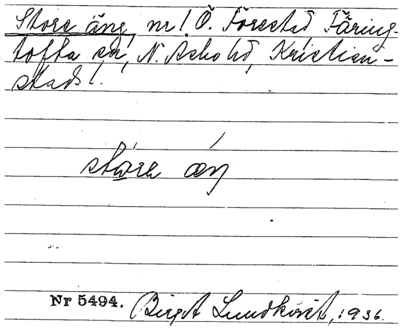 Store äng, nr 1 Ö. Forestad, Färing-
tofta sn, N. Åsbo hd, Kristian-
stads l.
stora äṅ
Nr 5494. Birgit Lundkvist, 1936.